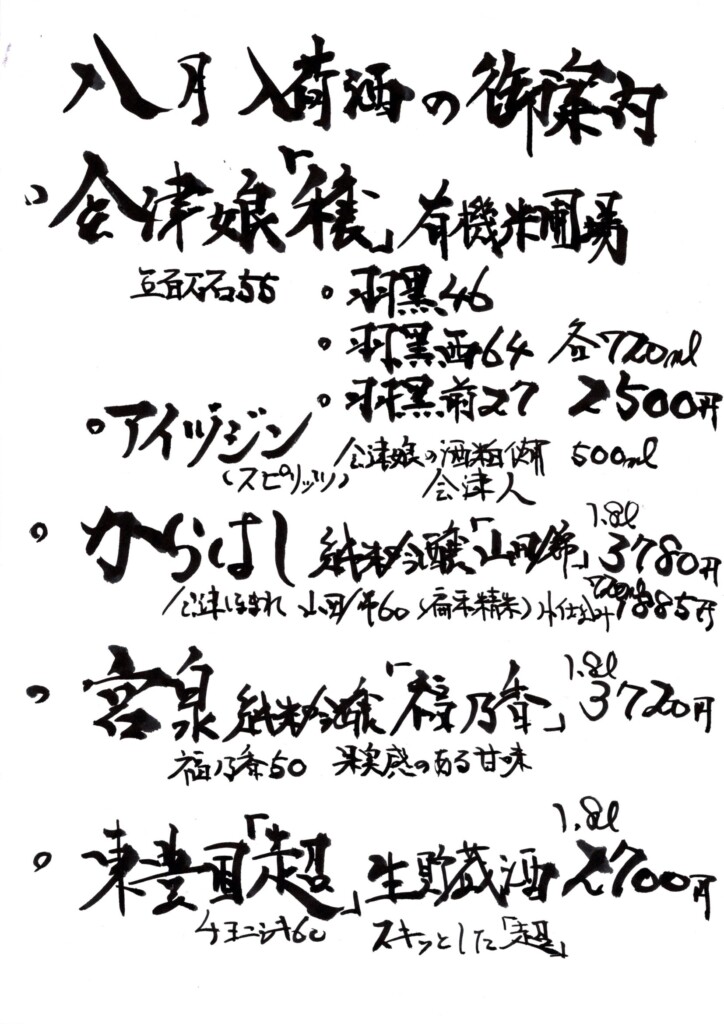 八月入荷酒の御案内
・会津娘「穣」有機米圃場
豆百刈石55 ・羽黒46
・羽黒西64 各720ml
・羽黒前27 2500円
・アイヅジン
(スピリッツ) 会津娘の酒粕使用 500ml
会津人
・からはし 純米吟醸「山田錦」1.8l 3780円
会津ほまれ 山田錦60(扁平精米)小仕込み 720ml 1885円
・宮泉 純米吟醸「福乃香」1.8l 3720円
福乃香50 果実感のある甘味
・東豊国「超」生貯蔵酒 1.8l 2700円
チヨニシキ60 スキッとした「超」